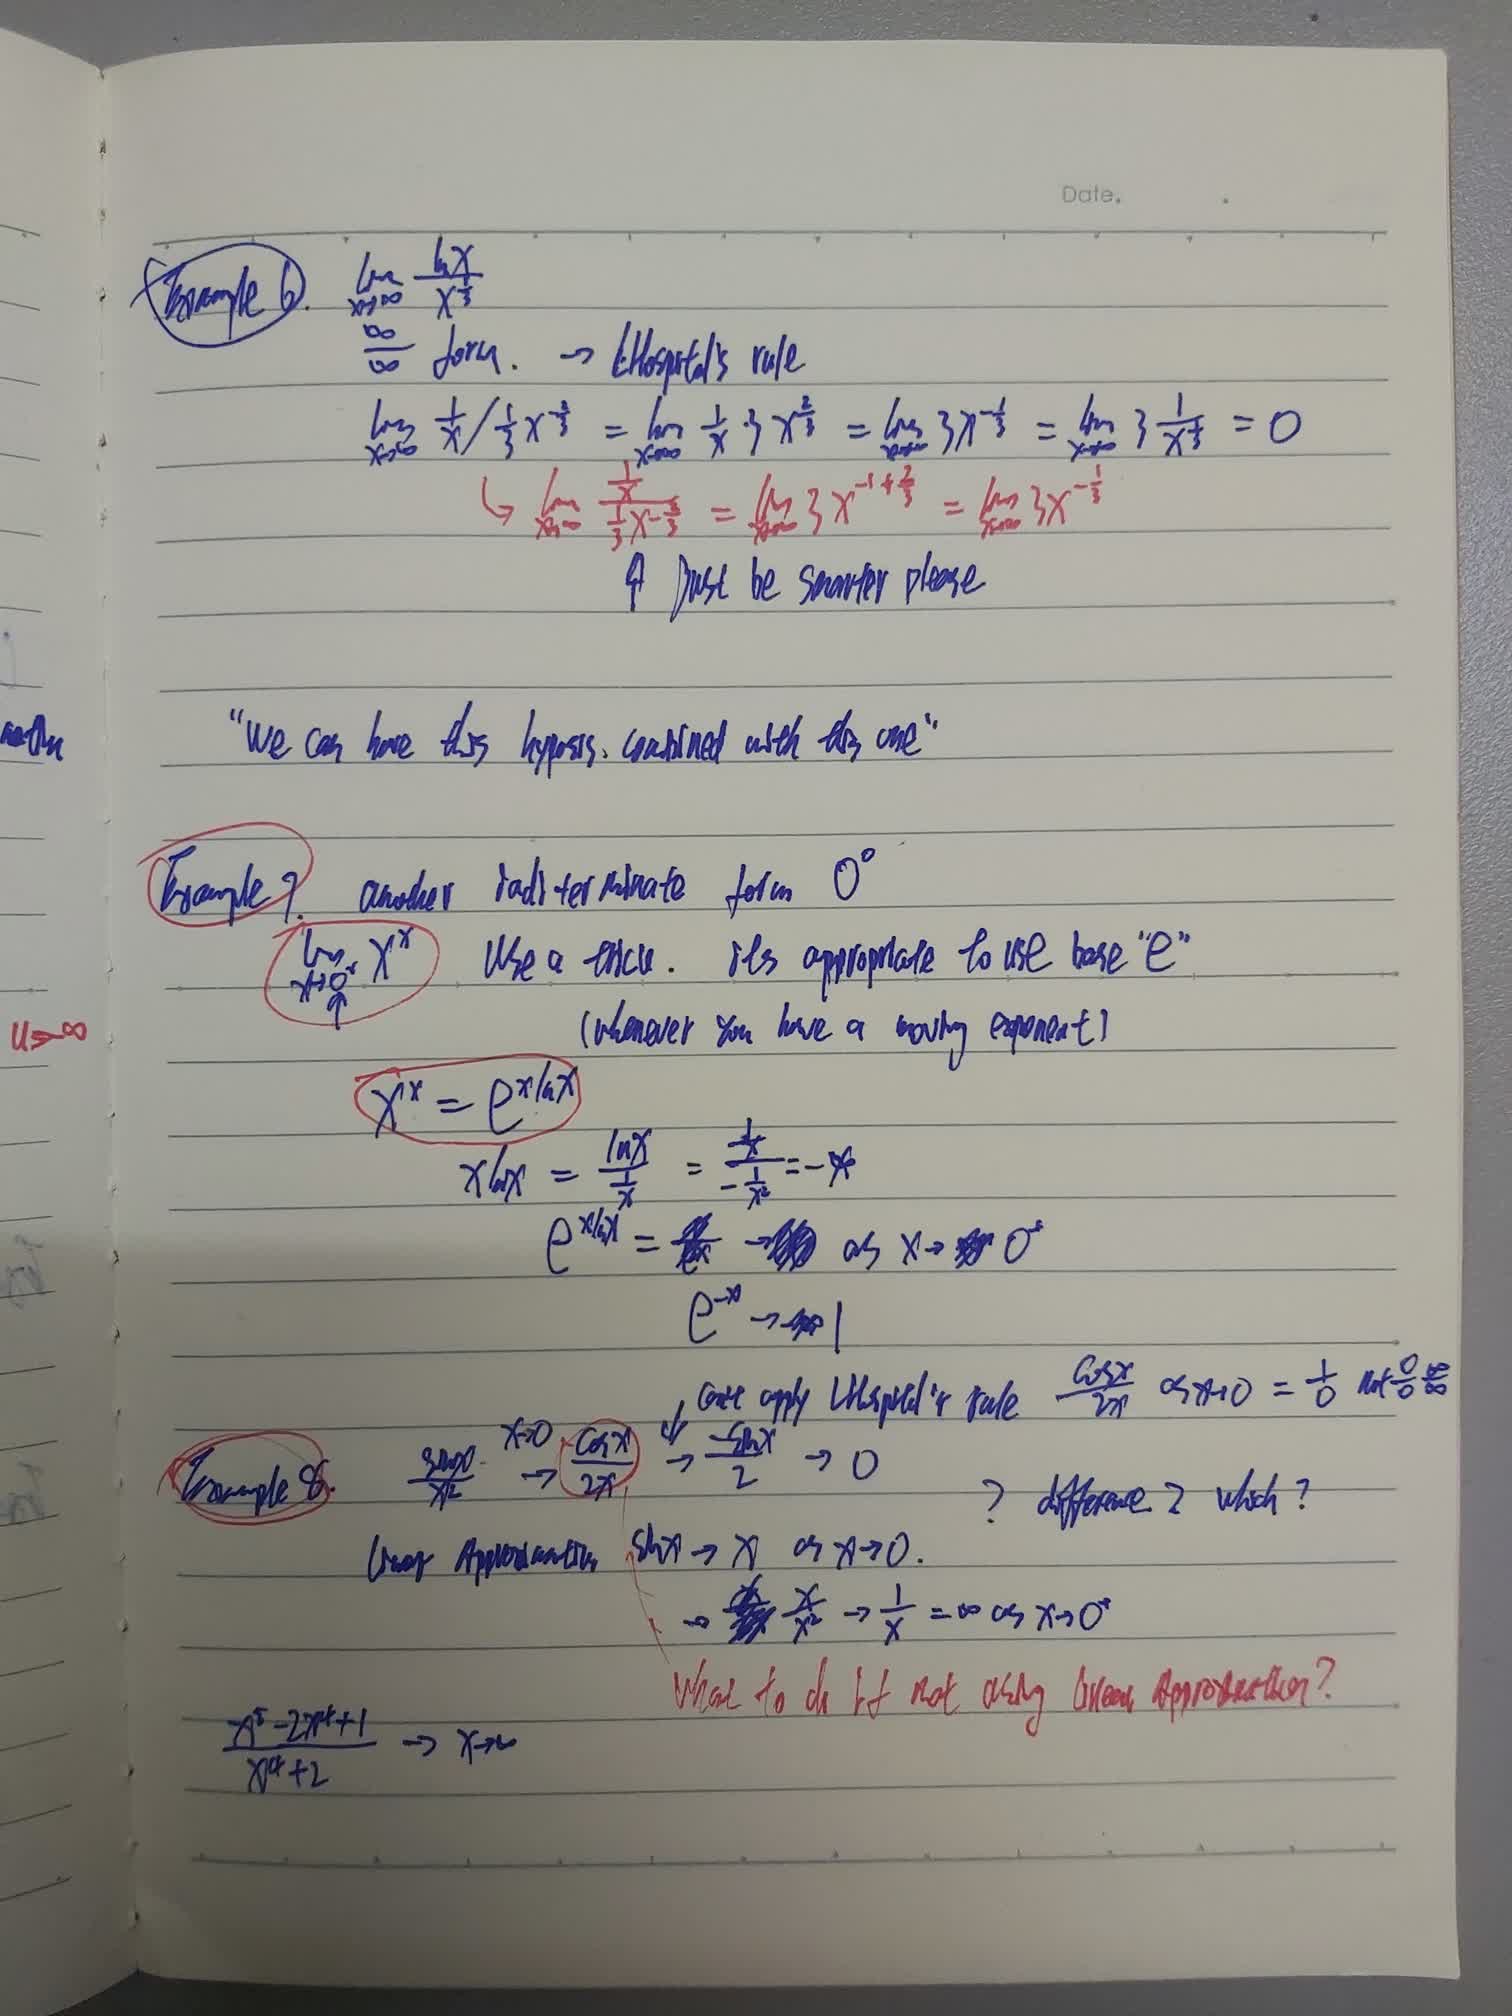 Date. .
Example 6. lim x→∞ lnx / x^(1/3)
∞/∞ form. → L'Hospital's rule
lim x→∞ 1/x / 1/3 x^(-2/3) = lim x→∞ 1/x · 3 x^(2/3) = lim x→∞ 3x^(-1/3) = lim x→∞ 3 1/x^(1/3) = 0
↳ lim x→∞ (1/x)/(1/3 x^(-2/3)) = lim x→∞ 3x^(-1+2/3) = lim x→∞ 3x^(-1/3)
↑ Just be smarter please
"We can have this combined with this one"
u→∞
Example 7. another form 0⁰
lim x→0⁺ x^x Use a trick. its appropriate to use base "e"
↑ (whenever you have a moving exponent)
x^x = e^(xlnx)
xlnx = lnx/(1/x) = (1/x)/(-1/x²) = -x
e^(xlnx) = → as x→ 0⁺
e^(-x) → 1
↓ can't apply L'Hospital's rule cosx/2x as x→0 = 1/0 not 0/0 ∞/∞
Example 8. sinx/x² x→0 → cosx/2x → -sinx/2 → 0
? difference ? which ?
Linear Approximation sinx → x as x→0.
→ x/x² → 1/x = ∞ as x→0⁺
What to do if not using Linear Approximation?
(x⁵-2x⁴+1)/(x⁴+2) → x→∞